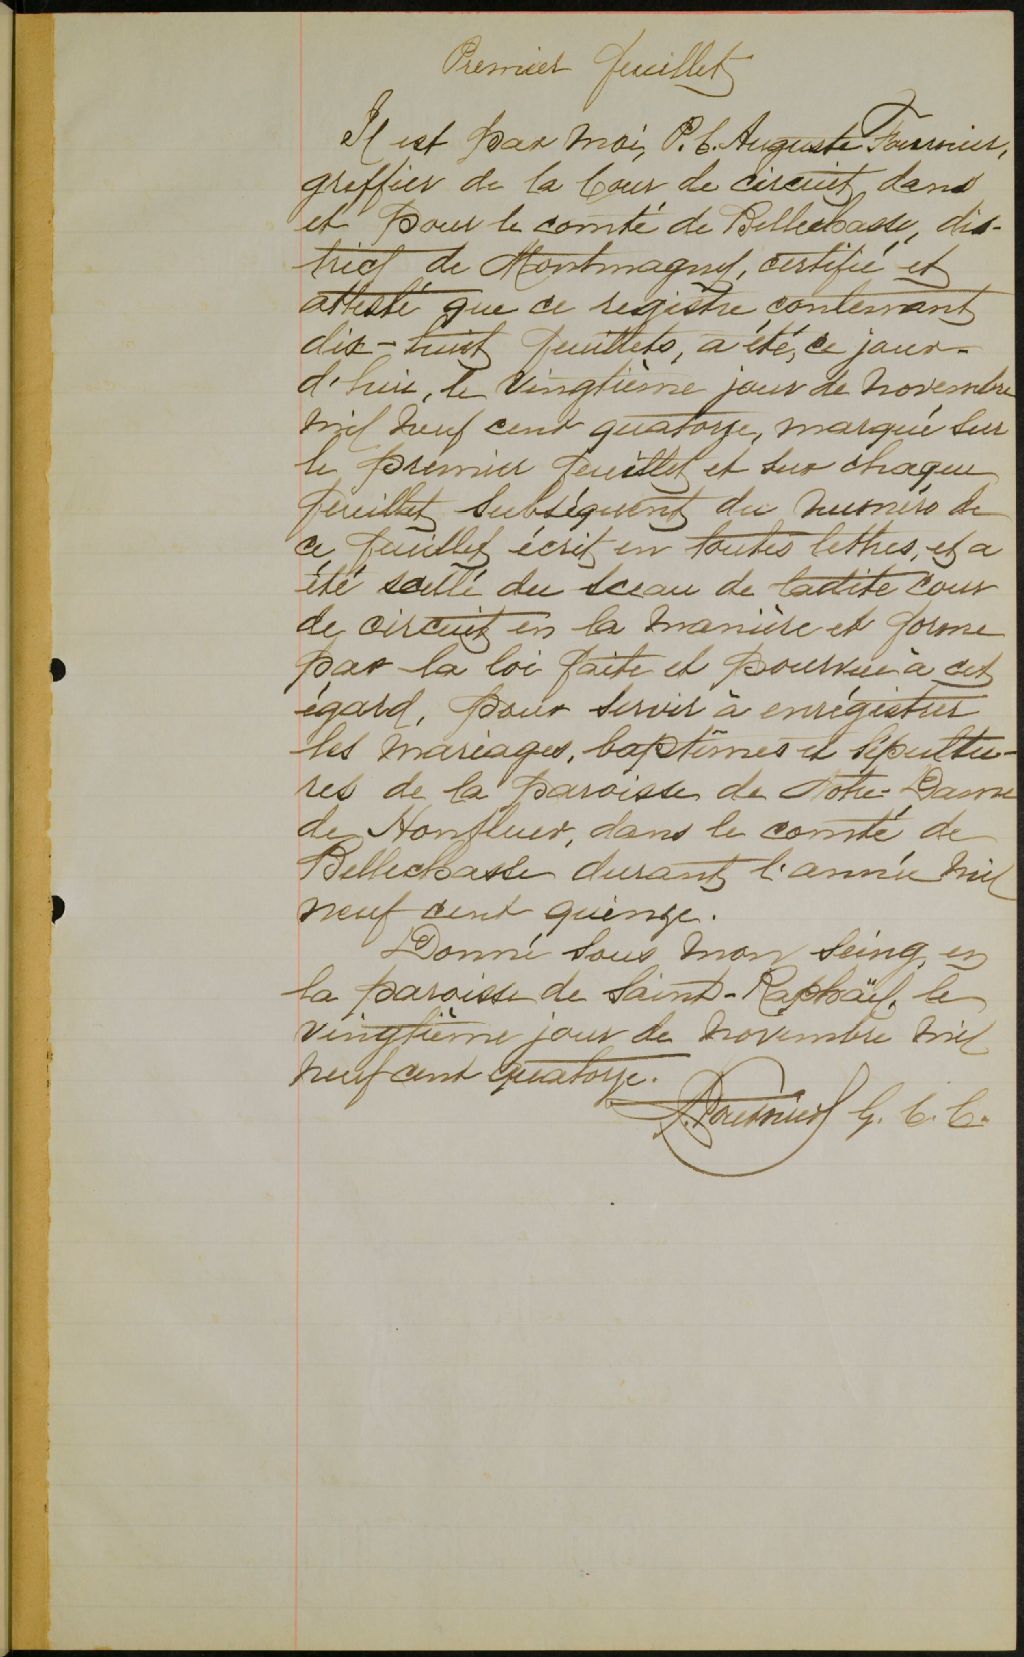 Premier feuillet
Il est par moi, P. C. Auguste Fournier,
greffier de la Cour de circuit, dans
et pour le comté de Bellechasse, dis-
trict de Montmagny, certifié et
attesté que ce registre contenant
dix-huit feuillets, a été, ce jour-
d'hui, le vingtième jour de novembre
mil neuf cent quatorze, marqué sur
le premier feuillet et sur chaque
feuillet subséquent du numéro de
ce feuillet écrit en toutes lettres, et a
été scellé du sceau de ladite cour
de circuit en la manière et forme
par la loi faite et pourvue à cet
égard, pour servir à enrégistrer
les mariages, baptêmes et sépultu-
res de la paroisse de Notre-Dame
de Honfleur, dans le comté de
Bellechasse durant l'année mil
neuf cent quinze.
Donné sous mon seing, en
la paroisse de Saint-Raphaël, le
vingtième jour de novembre mil
neuf cent quatorze.
A. Fournier G. C. C.